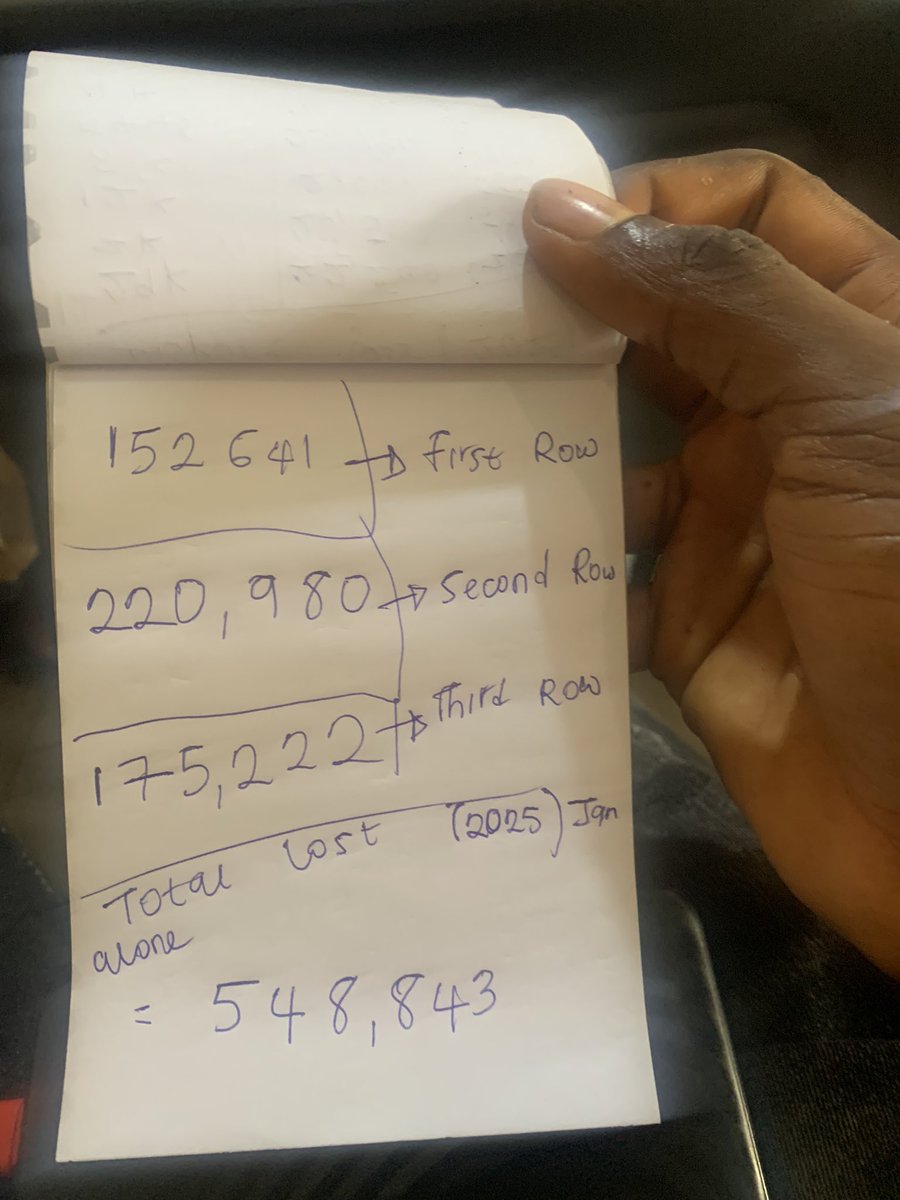 152 641 → First Row
220,980 → Second Row
175,222 → Third Row
Total Lost (2025) Jan
alone
= 548,843